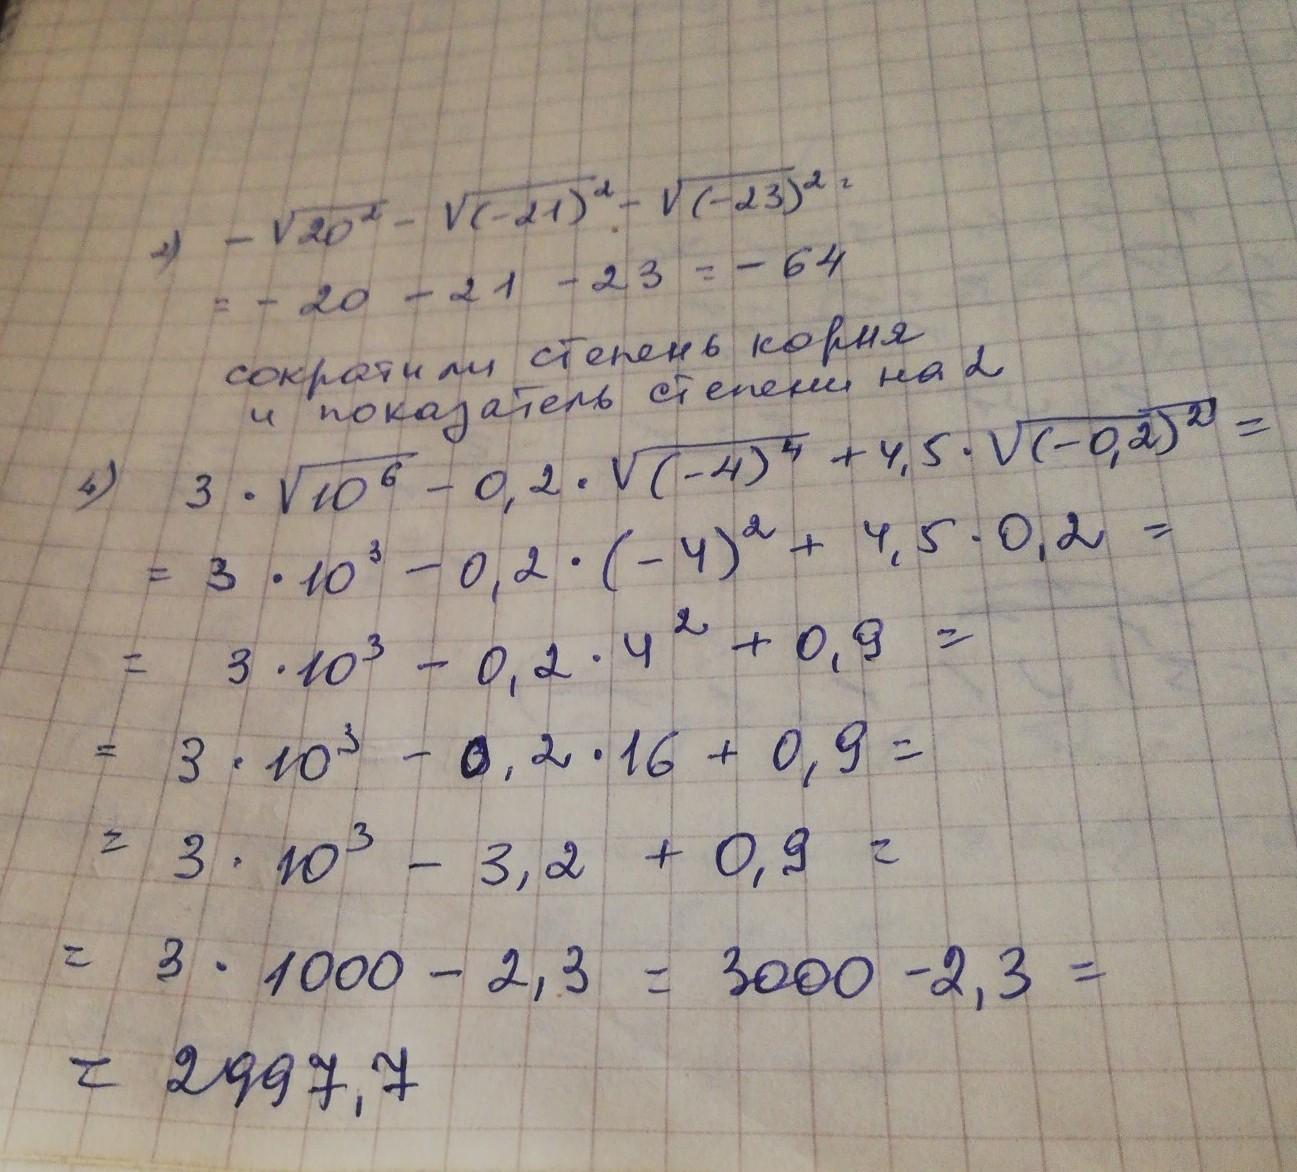 2) - √20² - √(-21)² - √(-23)² =
= - 20 - 21 - 23 = - 64
сократили степень корня
и показатель степени на 2
4) 3 · √10⁶ - 0,2 · √(-4)⁴ + 4,5 · √(-0,2)² =
= 3 · 10³ - 0,2 · (-4)² + 4,5 · 0,2 =
= 3 · 10³ - 0,2 · 4² + 0,9 =
= 3 · 10³ - 0,2 · 16 + 0,9 =
= 3 · 10³ - 3,2 + 0,9 =
= 3 · 1000 - 2,3 = 3000 - 2,3 =
= 2997,7